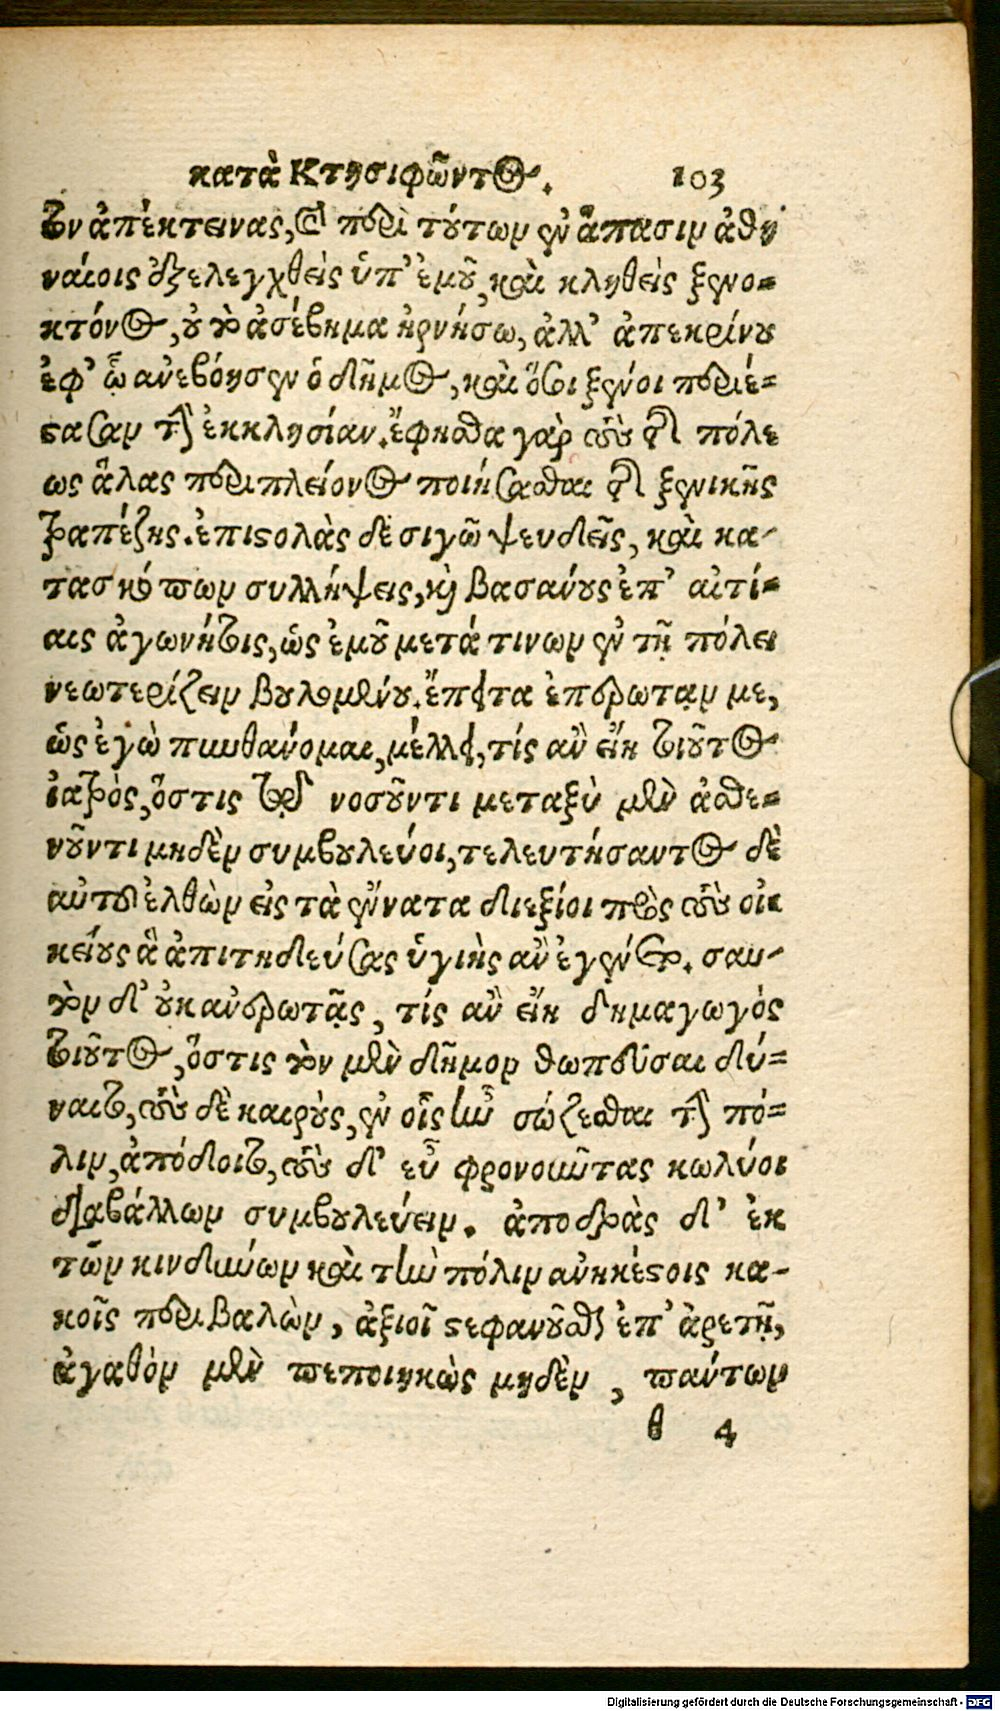 κατὰ Κτησιφῶντος. 103
τον ἀπέκτεινας, καὶ περὶ τούτων ἐν ἅπασιν ἀθη
ναίοις ἐξελεγχθεὶς ὑπ' ἐμοῦ, καὶ κληθεὶς ξενο-
κτόνος, οὐ τὸ ἀσέβημα ἠρνήσω, ἀλλ' ἀπεκρίνου
ἐφ' ᾧ ἀνεβόησεν ὁ δῆμος, καὶ ὅσοι ξένοι περιέ-
στασαν τὴν ἐκκλησίαν. ἔφησθα γὰρ τοὺς τῆς πόλε
ως ἅλας περὶ πλείονος ποιήσασθαι τῆς ξενικῆς
τραπέζης. ἐπιστολὰς δὲ σιγῶ ψευδεῖς, καὶ κα-
τασκόπων συλλήψεις, καὶ βασάνους ἐπ' αἰτί-
αις ἀγωνήτοις, ὡς ἐμοῦ μετά τινων ἐν τῇ πόλει
νεωτερίζειν βουλομένου. ἔπειτα ἐπερωτᾷν με,
ὡς ἐγὼ πυνθάνομαι, μέλλει, τίς ἂν εἴη τοιοῦτος
ἰατρὸς, ὅστις τῷ νοσοῦντι μεταξὺ μὲν ἀσθε-
νοῦντι μηδὲν συμβουλεύοι, τελευτήσαντος δὲ
αὐτοῦ ἐλθὼν εἰς τὰ ἔννατα διεξίοι πρὸς τοὺς οἰ
κείους ἃ ἀπιτηδεύσας ὑγιὴς ἂν ἐγένετο. σαυ-
τὸν δ' οὐκ ἀνερωτᾷς, τίς ἂν εἴη δημαγωγὸς
τοιοῦτος, ὅστις τὸν μὲν δῆμον θωπεῦσαι δύ-
ναιτο, τοὺς δὲ καιροὺς, ἐν οἷς ἦν σώζεσθαι τὴν πό-
λιν, ἀπόδοιτο, τοὺς δ' εὖ φρονοῦντας κωλύοι
διαβάλλων συμβουλεύειν. ἀποδρὰς δ' ἐκ
τῶν κινδύνων καὶ τὴν πόλιν ἀνηκέστοις κα-
κοῖς περιβαλὼν, ἀξιοῖ στεφανοῦσθαι ἐπ' ἀρετῇ,
ἀγαθὸν μὲν πεποιηκὼς μηδὲν, πάντων
θ 4
Digitalisierung gefördert durch die Deutsche Forschungsgemeinschaft - DFG